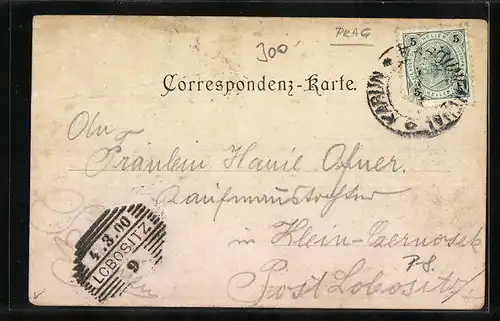 PRAG
300
5 5
Correspondenz-Karte.
KAROLINENTHAL
KARLÍN
An
Fräulein Hanie Ofner.
Kaufmannstochter
in Klein-Czernosek
P.S.
Post Lobositz
4.3.00
LOBOSITZ
9